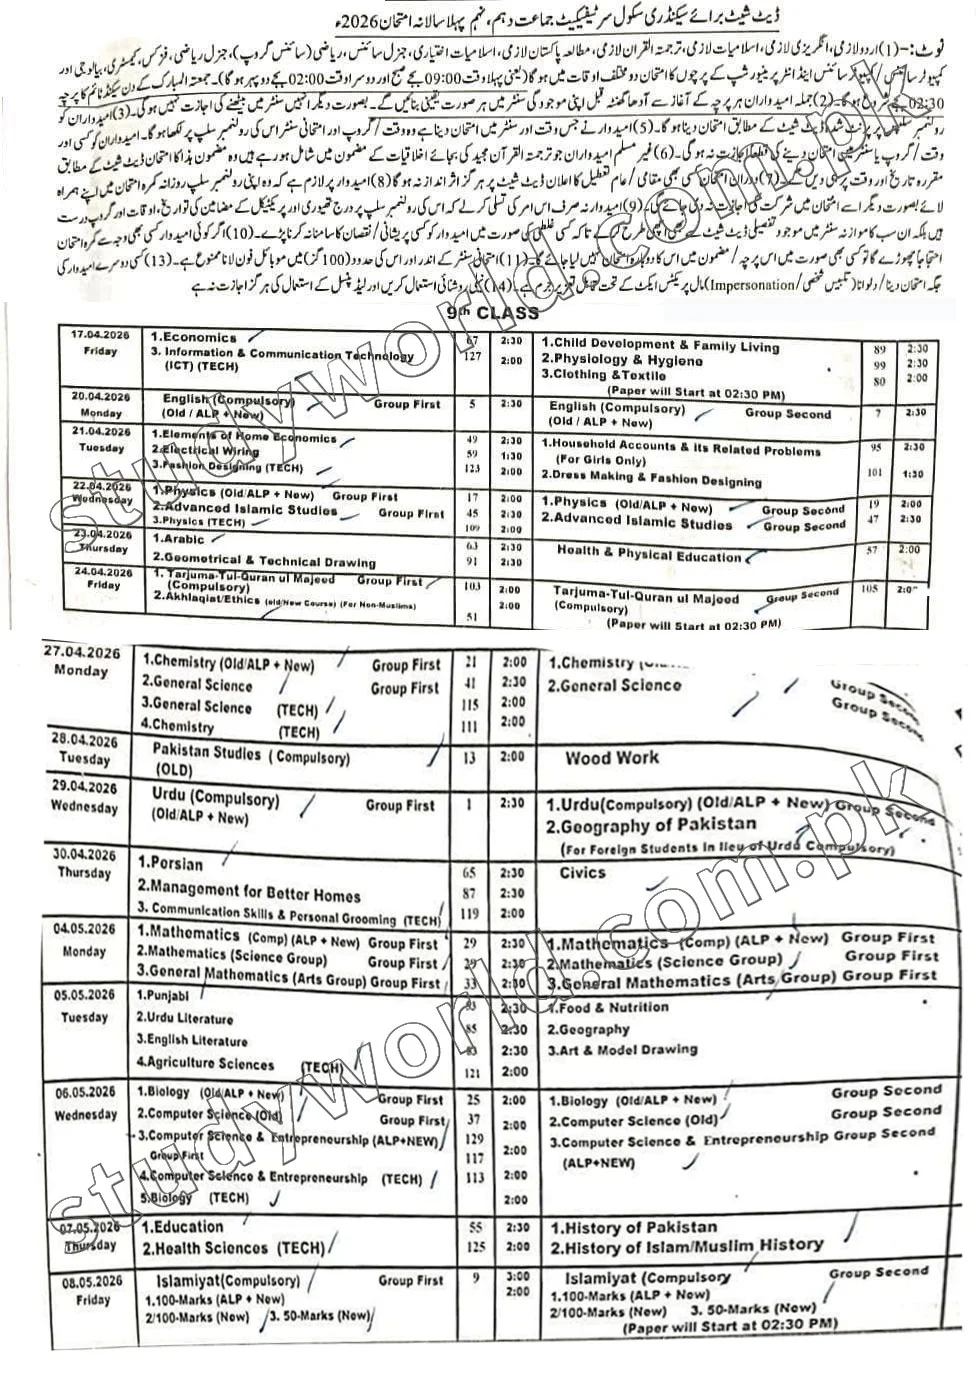 ڈیٹ شیٹ برائے سیکنڈری سکول سرٹیفکیٹ جماعت دہم، نہم پہلا سالانہ امتحان 2026ء
نوٹ:-(1)اردو لازمی، انگریزی لازمی، اسلامیات لازمی، ترجمۃ القرآن لازمی، مطالعہ پاکستان لازمی، اسلامیات اختیاری، جنرل سائنس، ریاضی (سائنس گروپ)، جنرل ریاضی، فزکس، کیمسٹری، بیالوجی اور
کمپیوٹر سائنس/کمپیوٹر سائنس اینڈ انٹرپرینیورشپ کے پرچوں کا امتحان دو مختلف اوقات میں ہو گا (یعنی پہلا وقت 09:00 بجے صبح اور دوسرا وقت 02:00 بجے دوپہر ہو گا)۔ جمعۃ المبارک کے دن سیکنڈ ٹائم کا پرچہ
02:30 بجے شروع ہو گا۔ (2) جملہ امیدواران ہر پرچہ کے آغاز سے آدھا گھنٹہ قبل اپنی موجودگی سنٹر میں ہر صورت یقینی بنائیں گے۔ بصورت دیگر انہیں سنٹر میں بیٹھنے کی اجازت نہیں ہو گی۔ (3) امیدواران کو
رولنمبر سلپس پر پرنٹ شدہ ڈیٹ شیٹ کے مطابق امتحان دینا ہو گا۔ (5) امیدوار نے جس وقت اور سنٹر میں امتحان دینا ہے وہ وقت/گروپ اور امتحانی سنٹر اس کی رولنمبر سلپ پر لکھا ہو گا۔ امیدواران کو کسی اور
وقت/گروپ یا سنٹر میں امتحان دینے کی قطعاً اجازت نہ ہو گی۔ (6) غیر مسلم امیدواران جو ترجمۃ القرآن مجید کی بجائے اخلاقیات کے مضمون میں شامل ہو رہے ہیں وہ مضمون ہذا کا امتحان ڈیٹ شیٹ کے مطابق
مقررہ تاریخ اور وقت پر ہی دیں گے۔ (7) دوران امتحان کسی بھی مقامی/عام تعطیل کا اعلان ڈیٹ شیٹ پر ہرگز اثر انداز نہ ہو گا (8) امیدوار پر لازم ہے کہ وہ اپنی رولنمبر سلپ روزانہ کمرہ امتحان میں اپنے ہمراہ
لائے بصورت دیگر اسے امتحان میں شرکت کی اجازت نہ دی جائے گی۔ (9) امیدوار نہ صرف اس امر کی تسلی کر لے کہ اس کی رولنمبر سلپ پر درج تھیوری اور پریکٹیکل کے مضامین کی تواریخ، اوقات اور گروپ درست
ہیں بلکہ ان سب کا موازنہ سنٹر میں موجود تفصیلی ڈیٹ شیٹ سے بھی اچھی طرح کر لے تاکہ کسی غلطی کی صورت میں امیدوار کو کسی پریشانی/نقصان کا سامنا نہ کرنا پڑے۔ (10) اگر کوئی امیدوار کسی بھی وجہ سے کمرہ امتحان
احتجاجاً چھوڑے گا تو کسی بھی صورت میں اس پرچہ/مضمون میں اس کا دوبارہ امتحان نہیں لیا جائے گا۔ (11) امتحانی سنٹر کے اندر اور اس کی حدود (100 گز) میں موبائل فون لانا ممنوع ہے۔ (13) کسی دوسرے امیدوار کی
جگہ امتحان دینا/دلوانا (تلبیس شخصی/Impersonation) مال پریکٹس ایکٹ کے تحت قابل تعزیر جرم ہے۔ (14) نیلی روشنائی استعمال کریں اور لیڈ پنسل کے استعمال کی ہرگز اجازت نہ ہے
9th CLASS
17.04.2026 Friday
1.Economics 67 2:30
3. Information & Communication Technology (ICT) (TECH) 127 2:00
1.Child Development & Family Living 89 2:30
2.Physiology & Hygiene 99 2:30
3.Clothing &Textile 80 2:00
(Paper will Start at 02:30 PM)
20.04.2026 Monday
English (Compulsory) (Old / ALP + New) Group First 5 2:30
English (Compulsory) (Old / ALP + New) Group Second 7 2:30
21.04.2026 Tuesday
1.Elements of Home Economics 49 2:30
2.Electrical Wiring 59 1:30
3.Fashion Designing (TECH) 123 2:00
1.Household Accounts & Its Related Problems (For Girls Only) 95 2:30
2.Dress Making & Fashion Designing 101 1:30
22.04.2026 Wednesday
1.Physics (Old/ALP + New) Group First 17 2:00
2.Advanced Islamic Studies Group First 45 2:30
3.Physics (TECH) 109 2:00
1.Physics (Old/ALP + New) Group Second 19 2:00
2.Advanced Islamic Studies Group Second 47 2:30
23.04.2026 Thursday
1.Arabic 63 2:30
2.Geometrical & Technical Drawing 91 2:30
Health & Physical Education 57 2:00
24.04.2026 Friday
1. Tarjuma-Tul-Quran ul Majeed (Compulsory) Group First 103 2:00
2.Akhlaqiat/Ethics (old/New Course) (For Non-Muslims) 51 2:00
Tarjuma-Tul-Quran ul Majeed (Compulsory) Group Second 105 2:0
(Paper will Start at 02:30 PM)
27.04.2026 Monday
1.Chemistry (Old/ALP + New) Group First 21 2:00
2.General Science Group First 41 2:30
3.General Science (TECH) 115 2:00
4.Chemistry (TECH) 111 2:00
1.Chemistry Group Second
2.General Science Group Second
28.04.2026 Tuesday
Pakistan Studies ( Compulsory) (OLD) 13 2:00
Wood Work
29.04.2026 Wednesday
Urdu (Compulsory) (Old/ALP + New) Group First 1 2:30
1.Urdu(Compulsory) (Old/ALP + New) Group Second
2.Geography of Pakistan
(For Foreign Students in lieu of Urdu Compulsory)
30.04.2026 Thursday
1.Persian 65 2:30
2.Management for Better Homes 87 2:30
3. Communication Skills & Personal Grooming (TECH) 119 2:00
Civics
04.05.2026 Monday
1.Mathematics (Comp) (ALP + New) Group First 29 2:30
2.Mathematics (Science Group) Group First 29 2:30
3.General Mathematics (Arts Group) Group First 33 2:30
1.Mathematics (Comp) (ALP + New) Group First
2.Mathematics (Science Group) Group First
3.General Mathematics (Arts Group) Group First
05.05.2026 Tuesday
1.Punjabi 93 2:30
2.Urdu Literature 85 2:30
3.English Literature 83 2:30
4.Agriculture Sciences (TECH) 121 2:00
1.Food & Nutrition
2.Geography
3.Art & Model Drawing
06.05.2026 Wednesday
1.Biology (Old/ALP + New) Group First 25 2:00
2.Computer Science (Old) Group First 37 2:00
3.Computer Science & Entrepreneurship (ALP+NEW) Group First 129 2:00
117
4.Computer Science & Entrepreneurship (TECH) 113 2:00
5.Biology (TECH) 2:00
1.Biology (Old/ALP + New) Group Second
2.Computer Science (Old) Group Second
3.Computer Science & Entrepreneurship Group Second (ALP+NEW)
07.05.2026 Thursday
1.Education 55 2:30
2.Health Sciences (TECH) 125 2:00
1.History of Pakistan
2.History of Islam/Muslim History
08.05.2026 Friday
Islamiyat(Compulsory) Group First 9 3:00
1.100-Marks (ALP + New) 2:00
2/100-Marks (New) 3. 50-Marks (New)
Islamiyat (Compulsory Group Second
1.100-Marks (ALP + New)
2/100-Marks (New) 3. 50-Marks (New)
(Paper will Start at 02:30 PM)
studyworld.com.pk
studyworld.com.pk